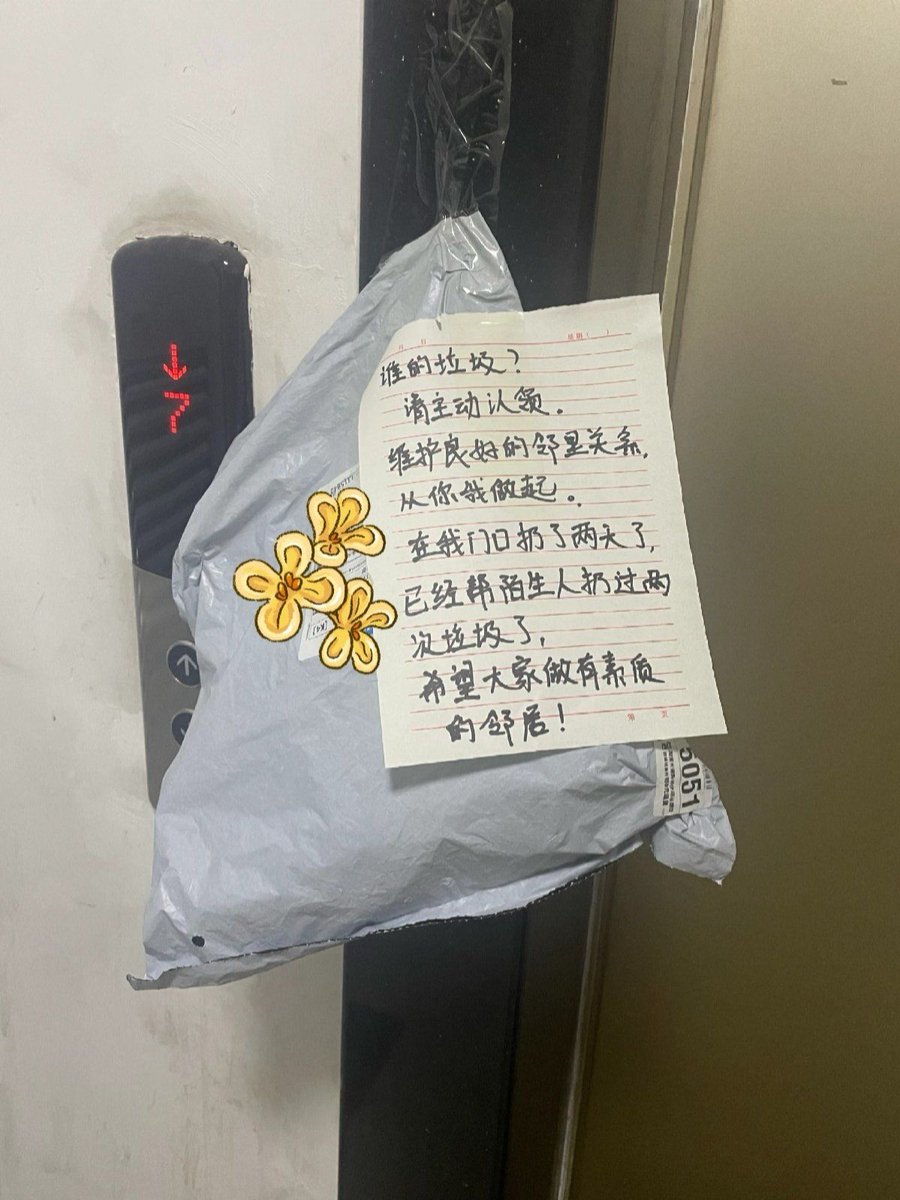 月 日 星期( )
谁的垃圾?
请主动认领.
维护良好的邻里关系,
从你我做起。
在我门口扔了两天了,
已经帮陌生人扔过两
次垃圾了,
希望大家做有素质
的邻居!
第 页
5051